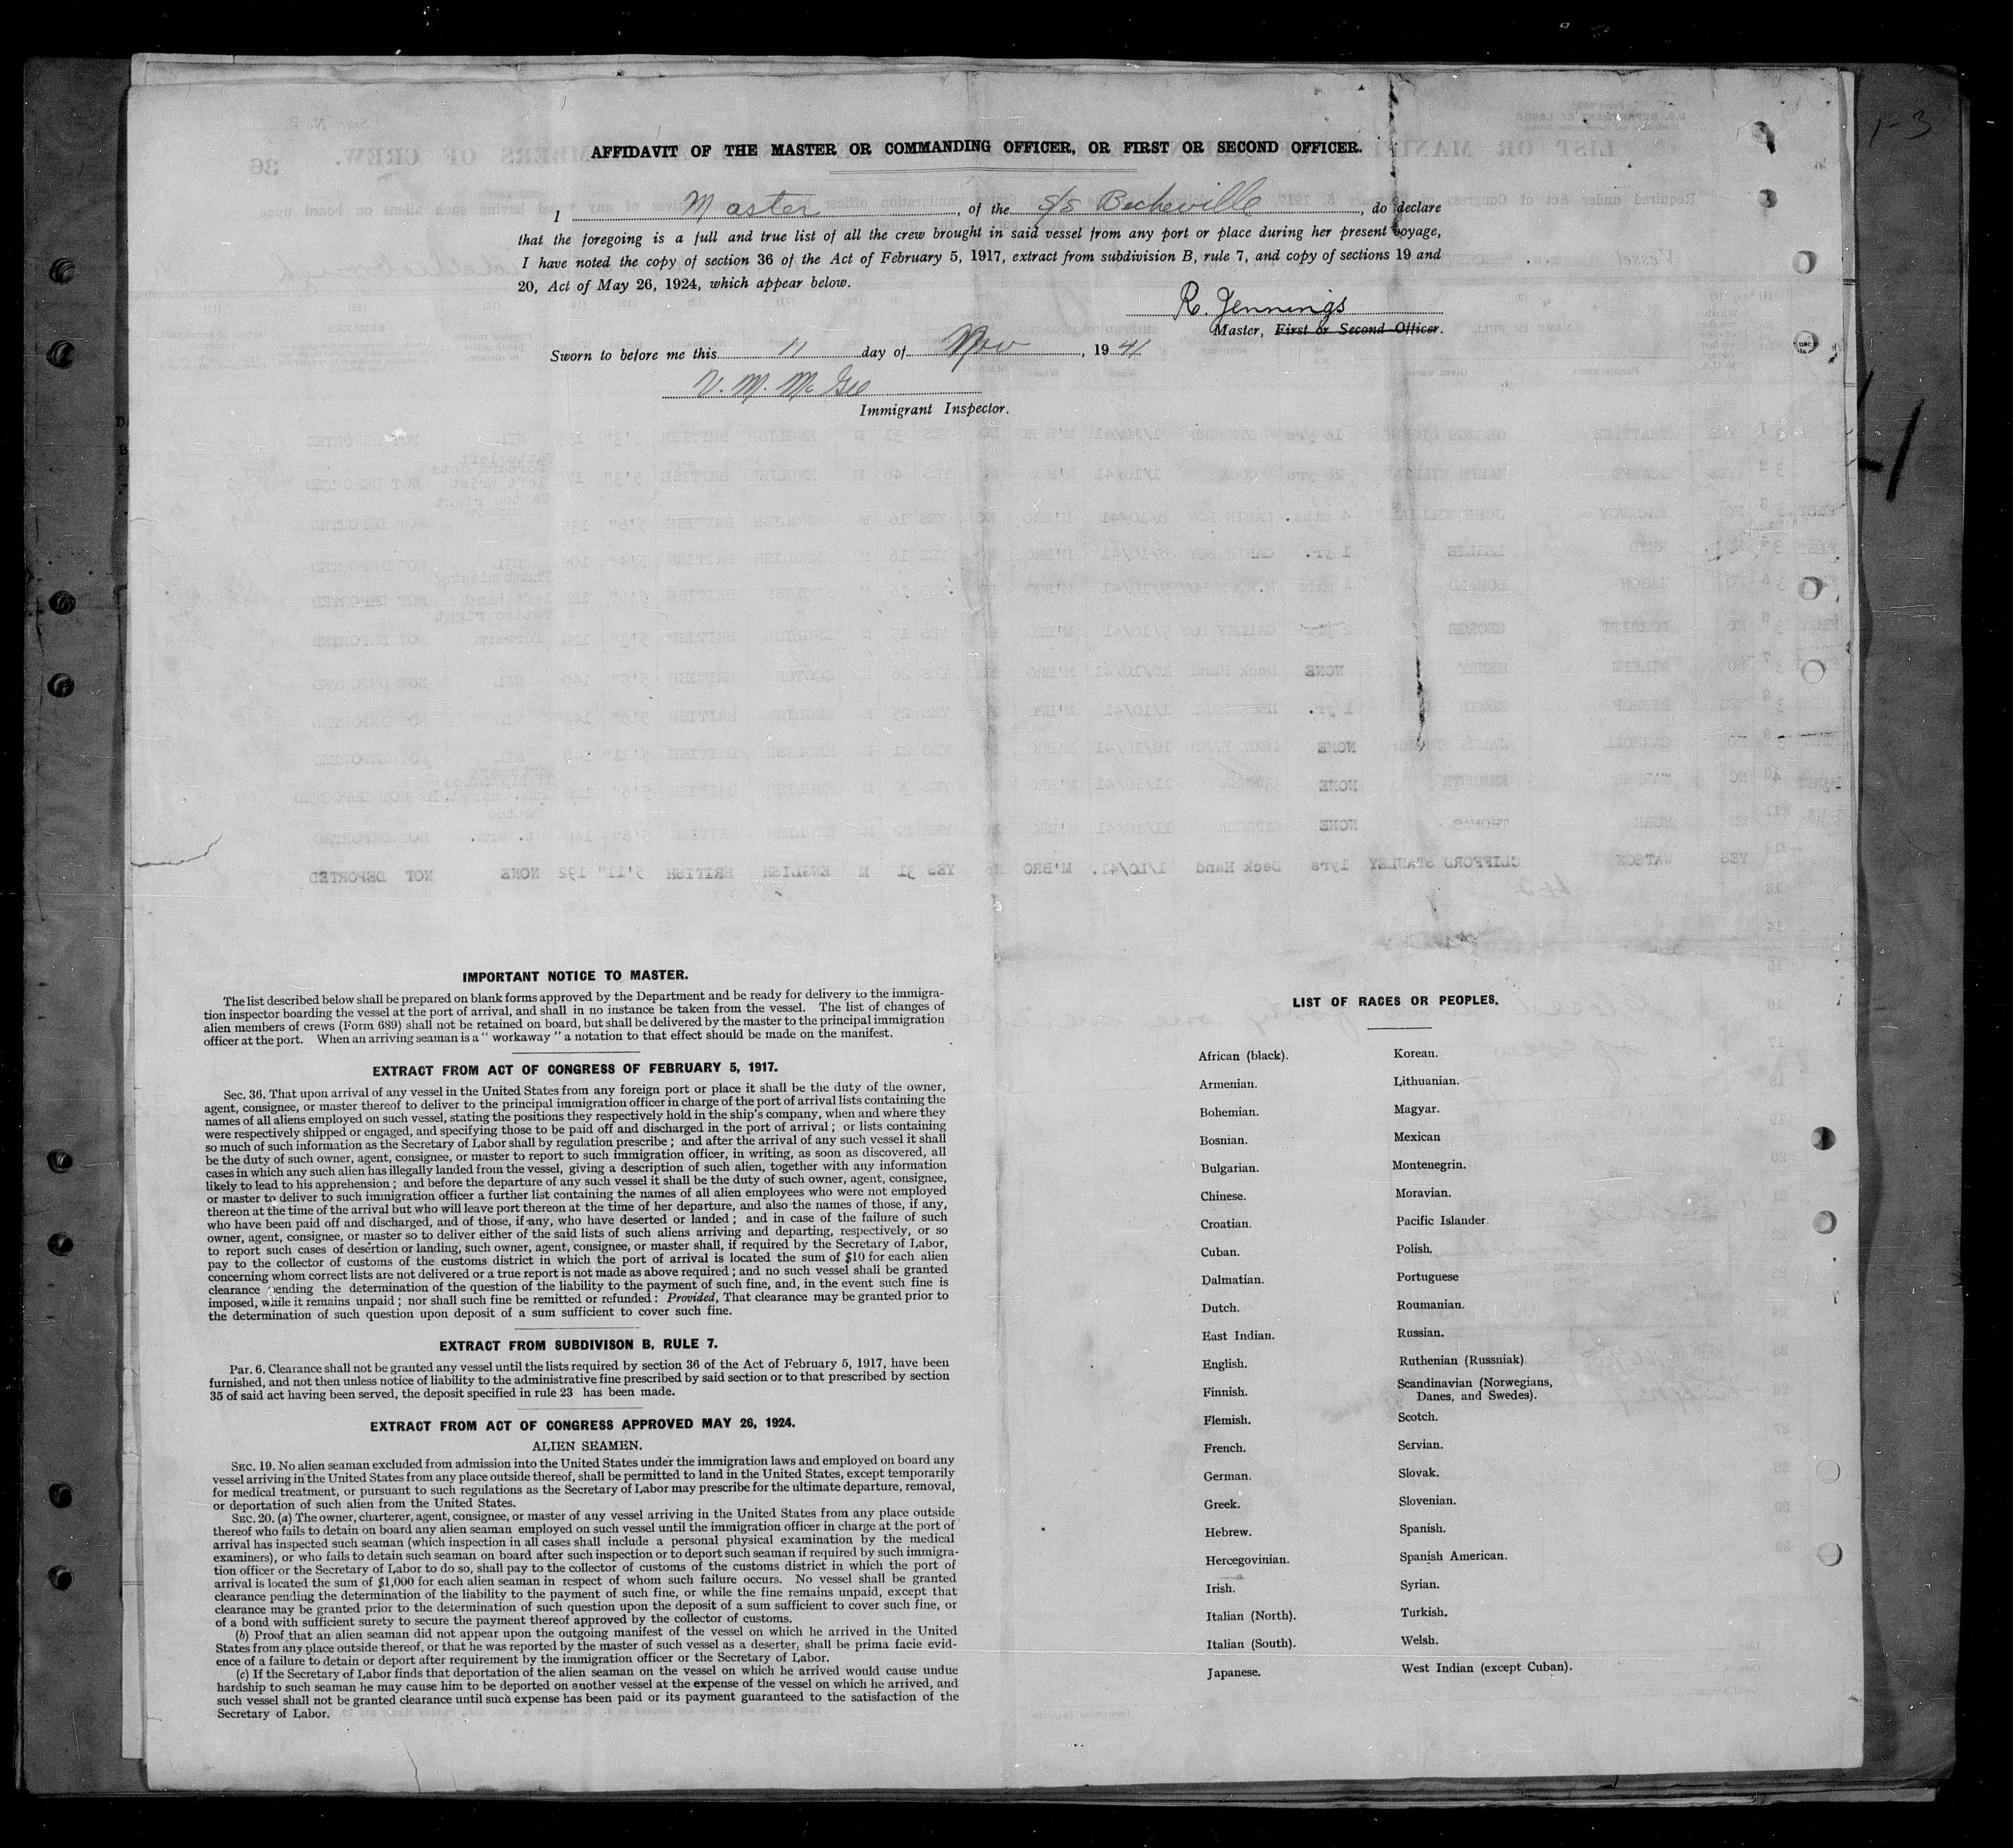 1-3
AFFIDAVIT OF THE MASTER OR COMMANDING OFFICER, OR FIRST OR SECOND OFFICER.
I Master, of the s/s Becheville, do declare
that the foregoing is a full and true list of all the crew brought in said vessel from any port or place during her present voyage,
I have noted the copy of section 36 of the Act of February 5, 1917, extract from subdivision B, rule 7, and copy of sections 19 and
20, Act of May 26, 1924, which appear below.
R. Jennings
Master, First or Second Officer.
Sworn to before me this 11 day of Nov, 1941
V. M. McGee
Immigrant Inspector.
IMPORTANT NOTICE TO MASTER.
The list described below shall be prepared on blank forms approved by the Department and be ready for delivery to the immigra-
tion inspector boarding the vessel at the port of arrival, and shall in no instance be taken from the vessel. The list of changes of
alien members of crews (Form 689) shall not be retained on board, but shall be delivered by the master to the principal immigration
officer at the port. When an arriving seaman is a " workaway " a notation to that effect should be made on the manifest.
EXTRACT FROM ACT OF CONGRESS OF FEBRUARY 5, 1917.
Sec. 36. That upon arrival of any vessel in the United States from any foreign port or place it shall be the duty of the owner,
agent, consignee, or master thereof to deliver to the principal immigration officer in charge of the port of arrival lists containing the
names of all aliens employed on such vessel, stating the positions they respectively hold in the ship's company, when and where they
were respectively shipped or engaged, and specifying those to be paid off and discharged in the port of arrival ; or lists containing
so much of such information as the Secretary of Labor shall by regulation prescribe ; and after the arrival of any such vessel it shall
be the duty of such owner, agent, consignee, or master to report to such immigration officer, in writing, as soon as discovered, all
cases in which any such alien has illegally landed from the vessel, giving a description of such alien, together with any information
likely to lead to his apprehension ; and before the departure of any such vessel it shall be the duty of such owner, agent, consignee,
or master to deliver to such immigration officer a further list containing the names of all alien employees who were not employed
thereon at the time of the arrival but who will leave port thereon at the time of her departure, and also the names of those, if any,
who have been paid off and discharged, and of those, if any, who have deserted or landed ; and in case of the failure of such
owner, agent, consignee, or master so to deliver either of the said lists of such aliens arriving and departing, respectively, or so
to report such cases of desertion or landing, such owner, agent, consignee, or master shall, if required by the Secretary of Labor,
pay to the collector of customs of the customs district in which the port of arrival is located the sum of $10 for each alien
concerning whom correct lists are not delivered or a true report is not made as above required ; and no such vessel shall be granted
clearance pending the determination of the question of the liability to the payment of such fine, and, in the event such fine is
imposed, while it remains unpaid ; nor shall such fine be remitted or refunded : Provided, That clearance may be granted prior to
the determination of such question upon deposit of a sum sufficient to cover such fine.
EXTRACT FROM SUBDIVISON B, RULE 7.
Par. 6. Clearance shall not be granted any vessel until the lists required by section 36 of the Act of February 5, 1917, have been
furnished, and not then unless notice of liability to the administrative fine prescribed by said section or to that prescribed by section
35 of said act having been served, the deposit specified in rule 23 has been made.
EXTRACT FROM ACT OF CONGRESS APPROVED MAY 26, 1924.
ALIEN SEAMEN.
SEC. 19. No alien seaman excluded from admission into the United States under the immigration laws and employed on board any
vessel arriving in the United States from any place outside thereof, shall be permitted to land in the United States, except temporarily
for medical treatment, or pursuant to such regulations as the Secretary of Labor may prescribe for the ultimate departure, removal,
or deportation of such alien from the United States.
SEC. 20. (a) The owner, charterer, agent, consignee, or master of any vessel arriving in the United States from any place outside
thereof who fails to detain on board any alien seaman employed on such vessel until the immigration officer in charge at the port of
arrival has inspected such seaman (which inspection in all cases shall include a personal physical examination by the medical
examiners), or who fails to detain such seaman on board after such inspection or to deport such seaman if required by such immigra-
tion officer or the Secretary of Labor to do so, shall pay to the collector of customs of the customs district in which the port of
arrival is located the sum of $1,000 for each alien seaman in respect of whom such failure occurs. No vessel shall be granted
clearance pending the determination of the liability to the payment of such fine, or while the fine remains unpaid, except that
clearance may be granted prior to the determination of such question upon the deposit of a sum sufficient to cover such fine, or
of a bond with sufficient surety to secure the payment thereof approved by the collector of customs.
(b) Proof that an alien seaman did not appear upon the outgoing manifest of the vessel on which he arrived in the United
States from any place outside thereof, or that he was reported by the master of such vessel as a deserter, shall be prima facie evid-
ence of a failure to detain or deport after requirement by the immigration officer or the Secretary of Labor.
(c) If the Secretary of Labor finds that deportation of the alien seaman on the vessel on which he arrived would cause undue
hardship to such seaman he may cause him to be deported on another vessel at the expense of the vessel on which he arrived, and
such vessel shall not be granted clearance until such expense has been paid or its payment guaranteed to the satisfaction of the
Secretary of Labor.
LIST OF RACES OR PEOPLES.
African (black).
Armenian.
Bohemian.
Bosnian.
Bulgarian.
Chinese.
Croatian.
Cuban.
Dalmatian.
Dutch.
East Indian.
English.
Finnish.
Flemish.
French.
German.
Greek.
Hebrew.
Hercegovinian.
Irish.
Italian (North).
Italian (South).
Japanese.
Korean.
Lithuanian.
Magyar.
Mexican
Montenegrin.
Moravian.
Pacific Islander.
Polish.
Portuguese
Roumanian.
Russian.
Ruthenian (Russniak).
Scandinavian (Norwegians,
Danes, and Swedes).
Scotch.
Servian.
Slovak.
Slovenian.
Spanish.
Spanish American.
Syrian.
Turkish.
Welsh.
West Indian (except Cuban).